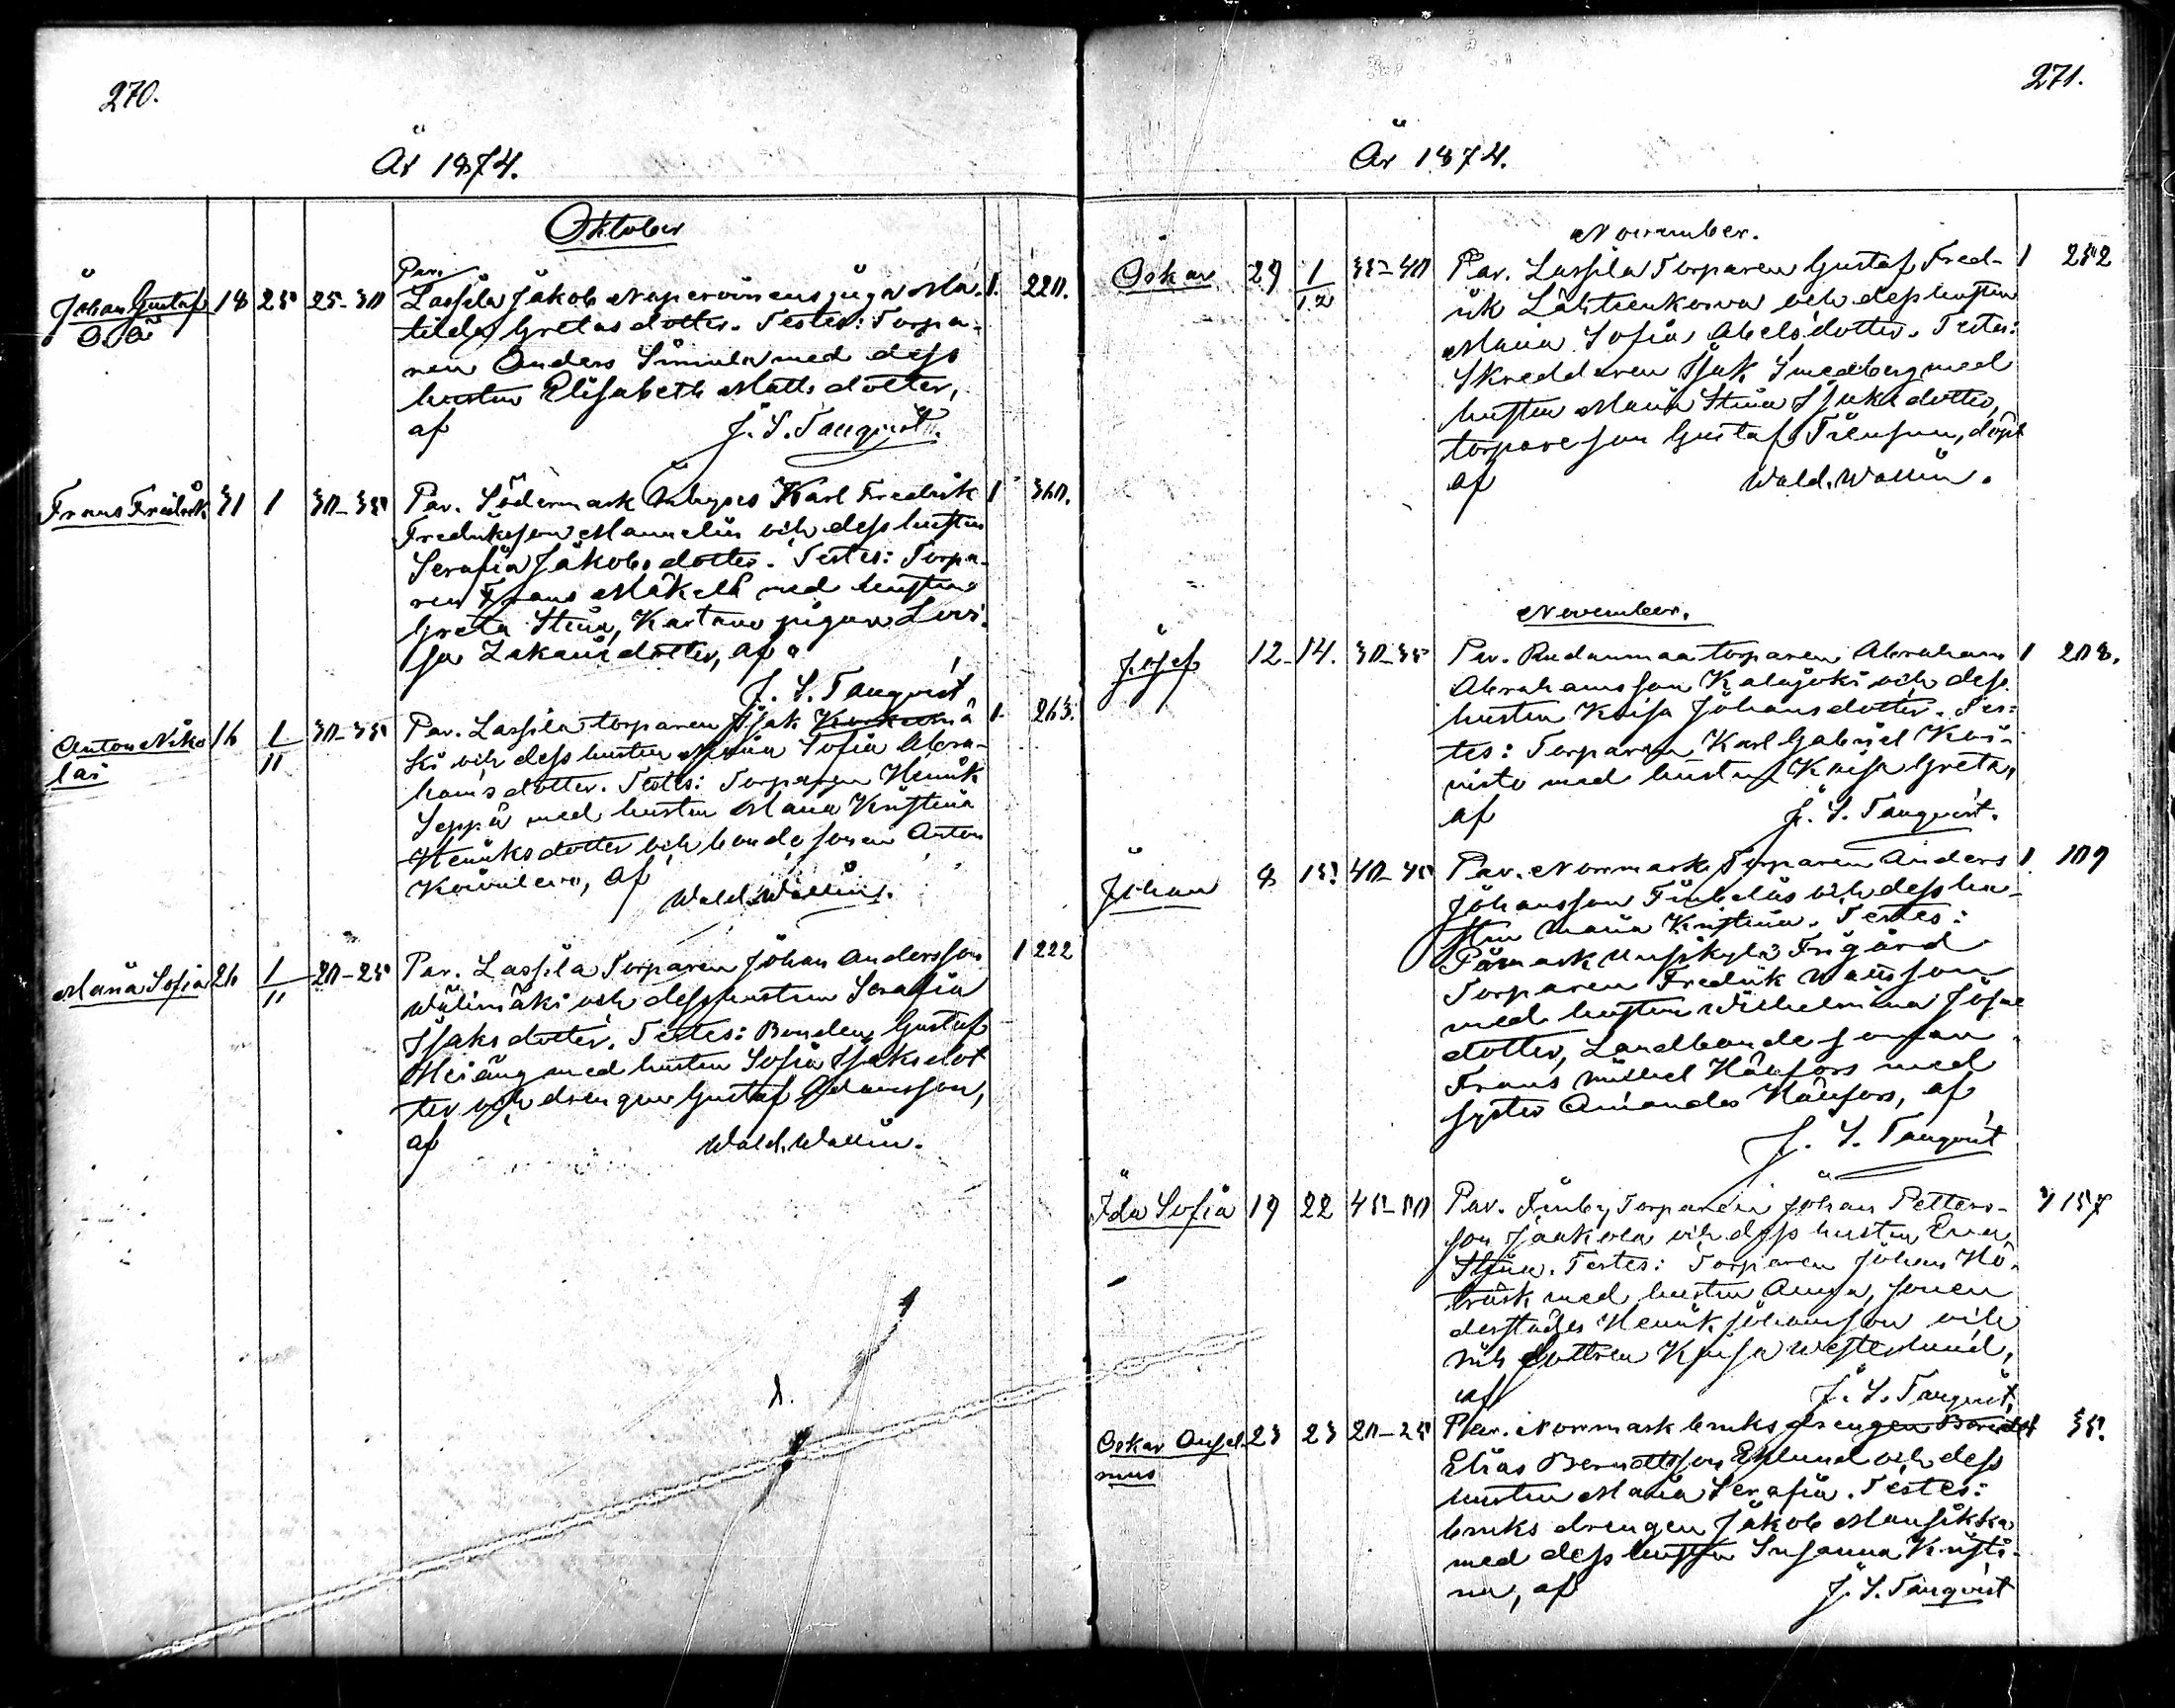 270.
År 1874.
Oktober
Johan Gustaf 18 25 25-30 Par. Lassila Jakob piga Ma- 1. 220.
O. Ä.
tilda Gretasdotter. Testes: Torpa-
ren Anders Simula med dess
hustru Elisabeth Mattsdotter,
af J. S. Tanqvist.
Frans Fredrik 31 1 30-35 Par. Södermark Karl Fredrik 1 360.
Fredriksson Mannelin och dess hustru
Serafia Jakobsdotter. Testes: Torpa-
ren Frans Mäkelä med hustru
Greta Stina, Kartano pigan Lovi-
sa Zakariédotter, af
J. S. Tanqvist.
Anton Niko- 16 1/11 30-35 Par. Lassila torparen Isak Korkiamä- 1. 263.
lai
ki och dess hustru Maria Sofia Abra-
hamsdotter. Testes: Torparen Henrik
Seppä med hustru Maria Kristina
Henriksdotter och bondesonen Anton
af Wald. Wallin.
Maria Sofia 26 1/11 20-25 Par. Lassila Torparen Johan Andersson 1 222
Wälimäki och dess hustru Serafia
Isaksdotter. Testes: Bonden Gustaf
med hustru Sofia Isaksdot
ter och drengen Gustaf Adamsson,
af Wald. Wallin.
1.
271.
År 1874.
November.
Oskar 29 1/12 35-40 Par. Lassila Torparen Gustaf Fred- 1 252
rik Lähteenkorva och dess hustru
Maria Sofia Abelsdotter. Testes:
Skreddaren Isak Smedberg med
hustru Maria Stina Isaksdotter,
torpareson Gustaf döpt
af Wald. Wallin.
November.
Josef 12. 14. 30-35 Par. Rudanmaa torparen Abraham 1 208.
Abrahamsson Kalajoki och dess
hustru Kaisa Johansdotter. Tes-
tes: Torparen Karl Gabriel Koi-
visto med hustru Kaisa Greta,
af J. S. Tanqvist.
Johan 8 15 40-45 Par. Norrmark Torparen Anders 1 109
Johansson och dess hu-
stru Maria Kristina. Testes:
Påmark Uusikylä Frigård
Torparen Fredrik Mattsson
med hustru Wilhelmina Josefs
dotter, Landbondesonen
Frans Mikkel Hänfors med
syster Amanda Hänfors, af
J. S. Tanqvist
Ida Sofia 19 22 45-50 Par. Finby Torparen Johan Petters- 1 157
son Jaakola och dess hustru Eva
Stina. Testes: Torparen Johan Hö-
träsk med hustru Anna, sonen
derstädes Henrik Johansson och
och dottren Kaisa Westerlund,
af J. S. Tanqvist,
Oskar Ansel- 23 23 20-25 Par. Norrmark bruksdrengen Berndt 35.
mus
Elias Berndtsson Eklund och dess
hustru Maria Serafia. Testes:
bruksdrengen Jakob Mansikka
med dess hustru Susanna Kristi-
na, af J. S. Tanqvist